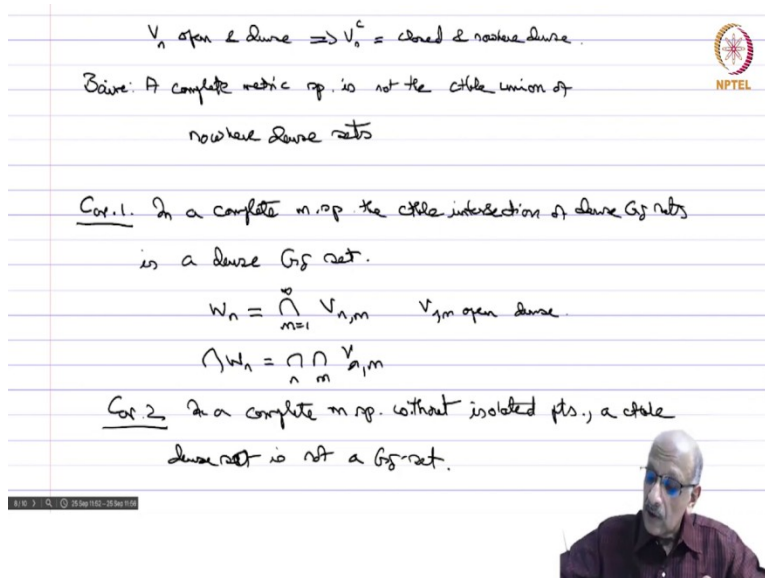 Vₙ open & dense => Vₙᶜ = closed & nowhere dense.
NPTEL
Baire: A complete metric sp. is not the ctble union of
nowhere dense sets
Cor. 1. In a complete m. sp. the ctble intersection of dense Gδ sets
is a dense Gδ set.
Wₙ = ∞⋂m=1 Vₙ,ₘ Vₙ,ₘ open dense.
⋂Wₙ = ⋂n ⋂m Vₙ,ₘ
Cor. 2 In a complete m sp. without isolated pts., a ctble
dense set is not a Gδ-set.